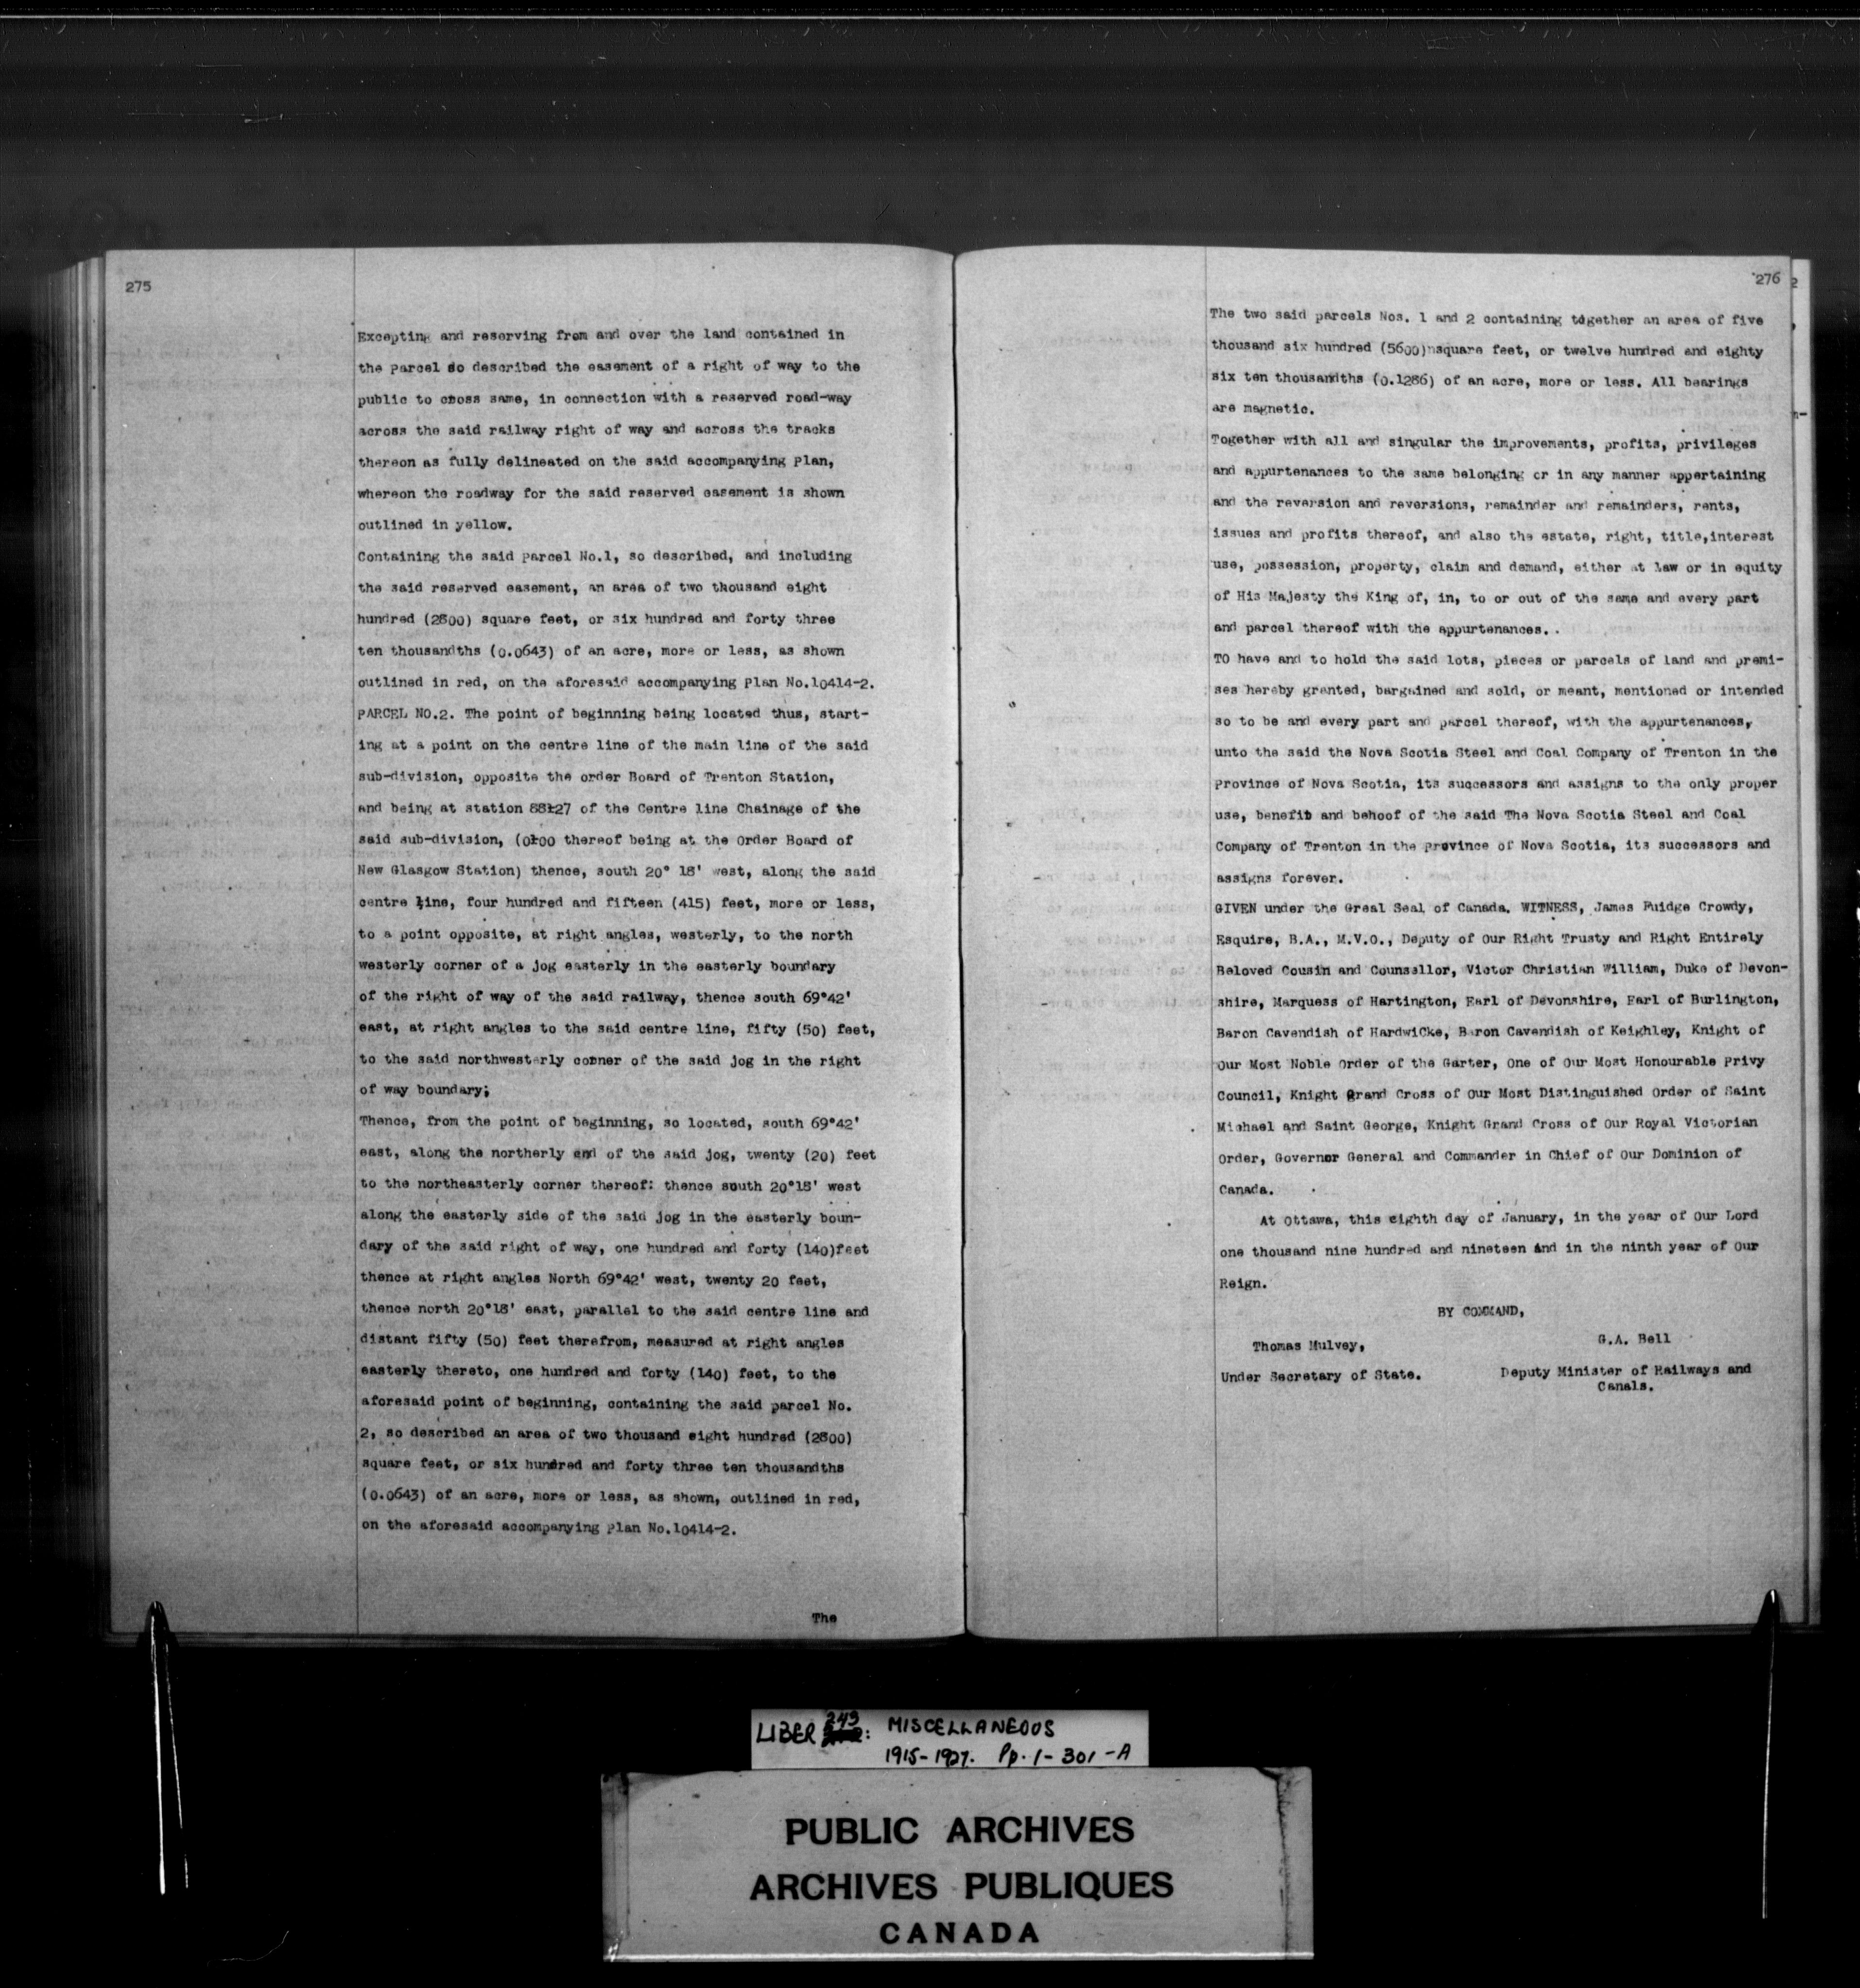 275
Excepting and reserving from and over the land contained in
the parcel so described the easement of a right of way to the
public to cross same, in connection with a reserved road-way
across the said railway right of way and across the tracks
thereon as fully delineated on the said accompanying plan,
whereon the roadway for the said reserved easement is shown
outlined in yellow.
Containing the said parcel No.1, so described, and including
the said reserved easement, an area of two thousand eight
hundred (2800) square feet, or six hundred and forty three
ten thousandths (0.0643) of an acre, more or less, as shown
outlined in red, on the aforesaid accompanying Plan No.10414-2.
PARCEL NO.2. The point of beginning being located thus, start-
ing at a point on the centre line of the main line of the said
sub-division, opposite the order Board of Trenton Station,
and being at station 88+27 of the Centre line Chainage of the
said sub-division, (0+00 thereof being at the Order Board of
New Glasgow Station) thence, south 20° 18' west, along the said
centre line, four hundred and fifteen (415) feet, more or less,
to a point opposite, at right angles, westerly, to the north
westerly corner of a jog easterly in the easterly boundary
of the right of way of the said railway, thence south 69°42'
east, at right angles to the said centre line, fifty (50) feet,
to the said northwesterly corner of the said jog in the right
of way boundary;
Thence, from the point of beginning, so located, south 69°42'
east, along the northerly end of the said jog, twenty (20) feet
to the northeasterly corner thereof: thence south 20°18' west
along the easterly side of the said jog in the easterly boun-
dary of the said right of way, one hundred and forty (140)feet
thence at right angles North 69°42' west, twenty 20 feet,
thence north 20°18' east, parallel to the said centre line and
distant fifty (50) feet therefrom, measured at right angles
easterly thereto, one hundred and forty (140) feet, to the
aforesaid point of beginning, containing the said parcel No.
2, so described an area of two thousand eight hundred (2800)
square feet, or six hundred and forty three ten thousandths
(0.0643) of an acre, more or less, as shown, outlined in red,
on the aforesaid accompanying Plan No.10414-2.
The
276
The two said parcels Nos. 1 and 2 containing together an area of five
thousand six hundred (5600)nsquare feet, or twelve hundred and eighty
six ten thousandths (0.1286) of an acre, more or less. All bearings
are magnetic.
Together with all and singular the improvements, profits, privileges
and appurtenances to the same belonging or in any manner appertaining
and the reversion and reversions, remainder and remainders, rents,
issues and profits thereof, and also the estate, right, title,interest
use, possession, property, claim and demand, either at law or in equity
of His Majesty the King of, in, to or out of the same and every part
and parcel thereof with the appurtenances.
TO have and to hold the said lots, pieces or parcels of land and premi-
ses hereby granted, bargained and sold, or meant, mentioned or intended
so to be and every part and parcel thereof, with the appurtenances,
unto the said the Nova Scotia Steel and Coal Company of Trenton in the
Province of Nova Scotia, its successors and assigns to the only proper
use, benefit and behoof of the said The Nova Scotia Steel and Coal
Company of Trenton in the province of Nova Scotia, its successors and
assigns forever.
GIVEN under the Greal Seal of Canada. WITNESS, James Fuidge Crowdy,
Esquire, B.A., M.V.O., Deputy of Our Right Trusty and Right Entirely
Beloved Cousin and Counsellor, Victor Christian William, Duke of Devon-
shire, Marquess of Hartington, Earl of Devonshire, Earl of Burlington,
Baron Cavendish of Hardwicke, Baron Cavendish of Keighley, Knight of
Our Most Noble Order of the Garter, One of Our Most Honourable Privy
Council, Knight Grand Cross of Our Most Distinguished Order of Saint
Michael and Saint George, Knight Grand Cross of Our Royal Victorian
Order, Governor General and Commander in Chief of Our Dominion of
Canada.
At Ottawa, this eighth day of January, in the year of Our Lord
one thousand nine hundred and nineteen and in the ninth year of Our
Reign.
BY COMMAND,
Thomas Mulvey,
Under Secretary of State.
G.A. Bell
Deputy Minister of Railways and
Canals.
LIBER 243: MISCELLANEOUS
1915-1927. Pp. 1-301-A
PUBLIC ARCHIVES
ARCHIVES PUBLIQUES
CANADA